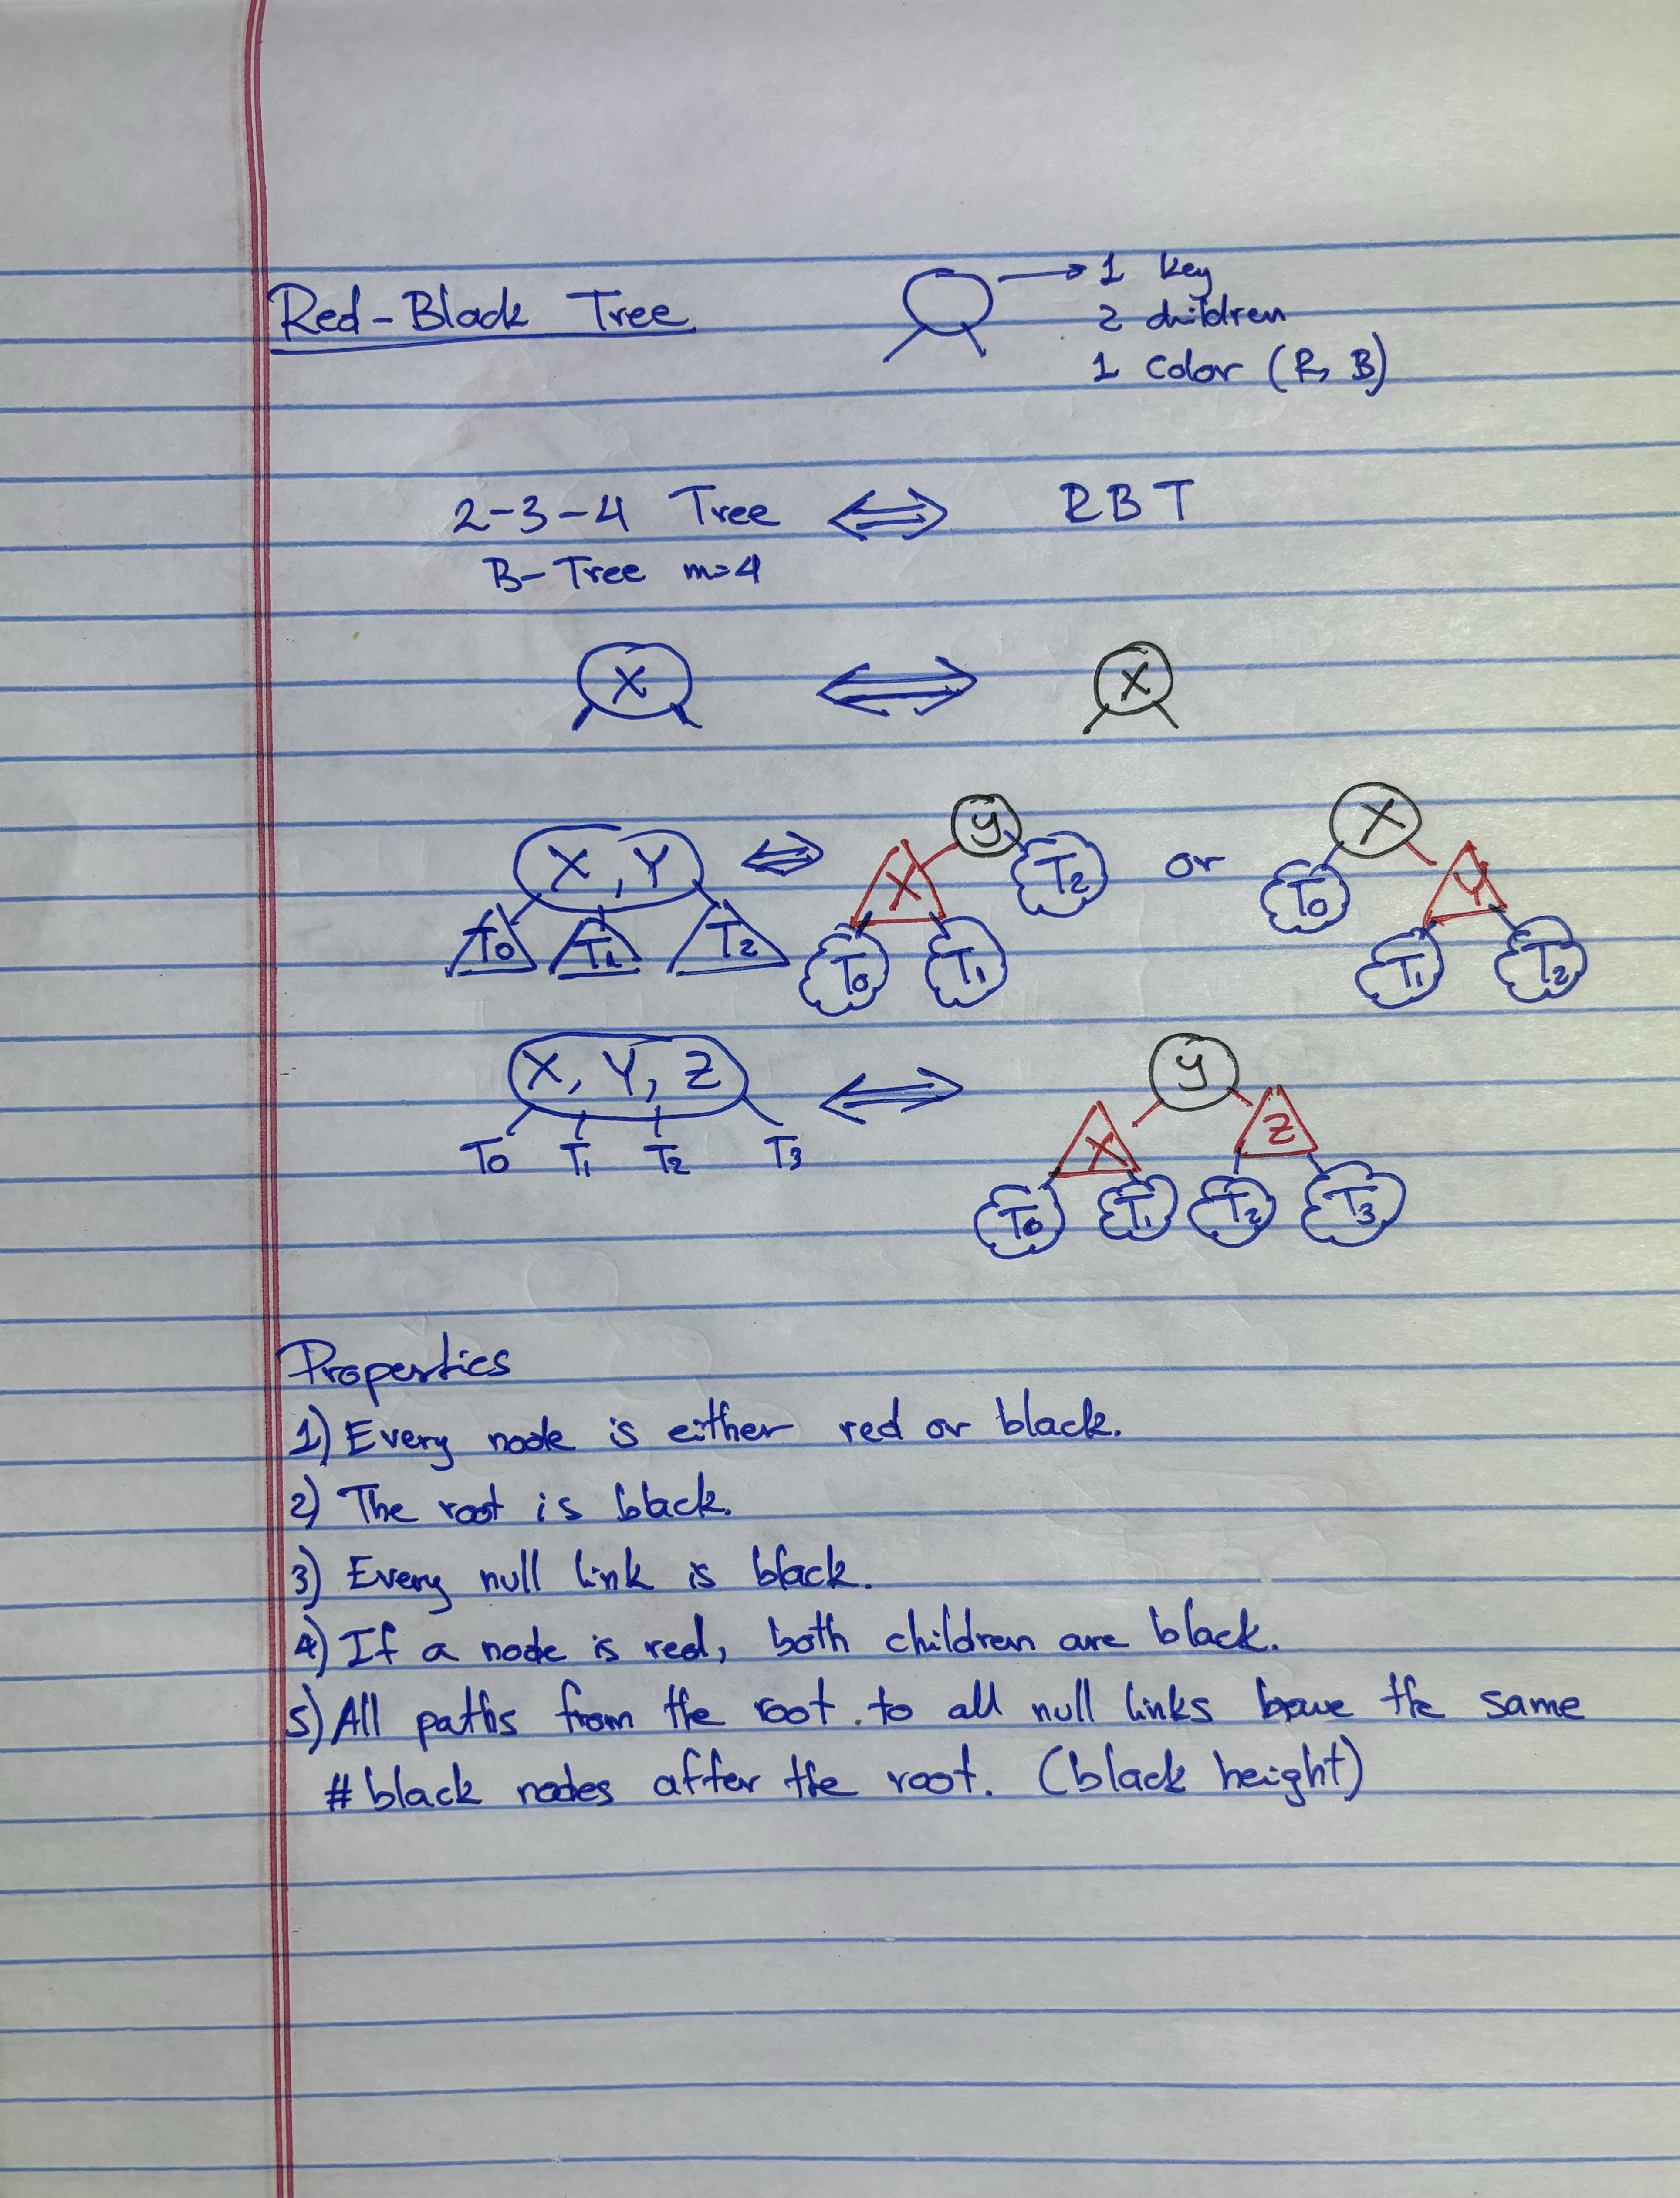 Red-Black Tree
1 key
2 children
1 Color (R, B)
2-3-4 Tree ⟺ RBT
B-Tree m=4
X ⟺ X
X, Y ⟺ Y X T2 T0 T1 or X T0 Y T1 T2
T0 T1 T2
X, Y, Z ⟺ Y X Z
T0 T1 T2 T3 T0 T1 T2 T3
Properties
1) Every node is either red or black.
2) The root is black.
3) Every null link is black.
4) If a node is red, both children are black.
5) All paths from the root to all null links have the same
# black nodes after the root. (black height)